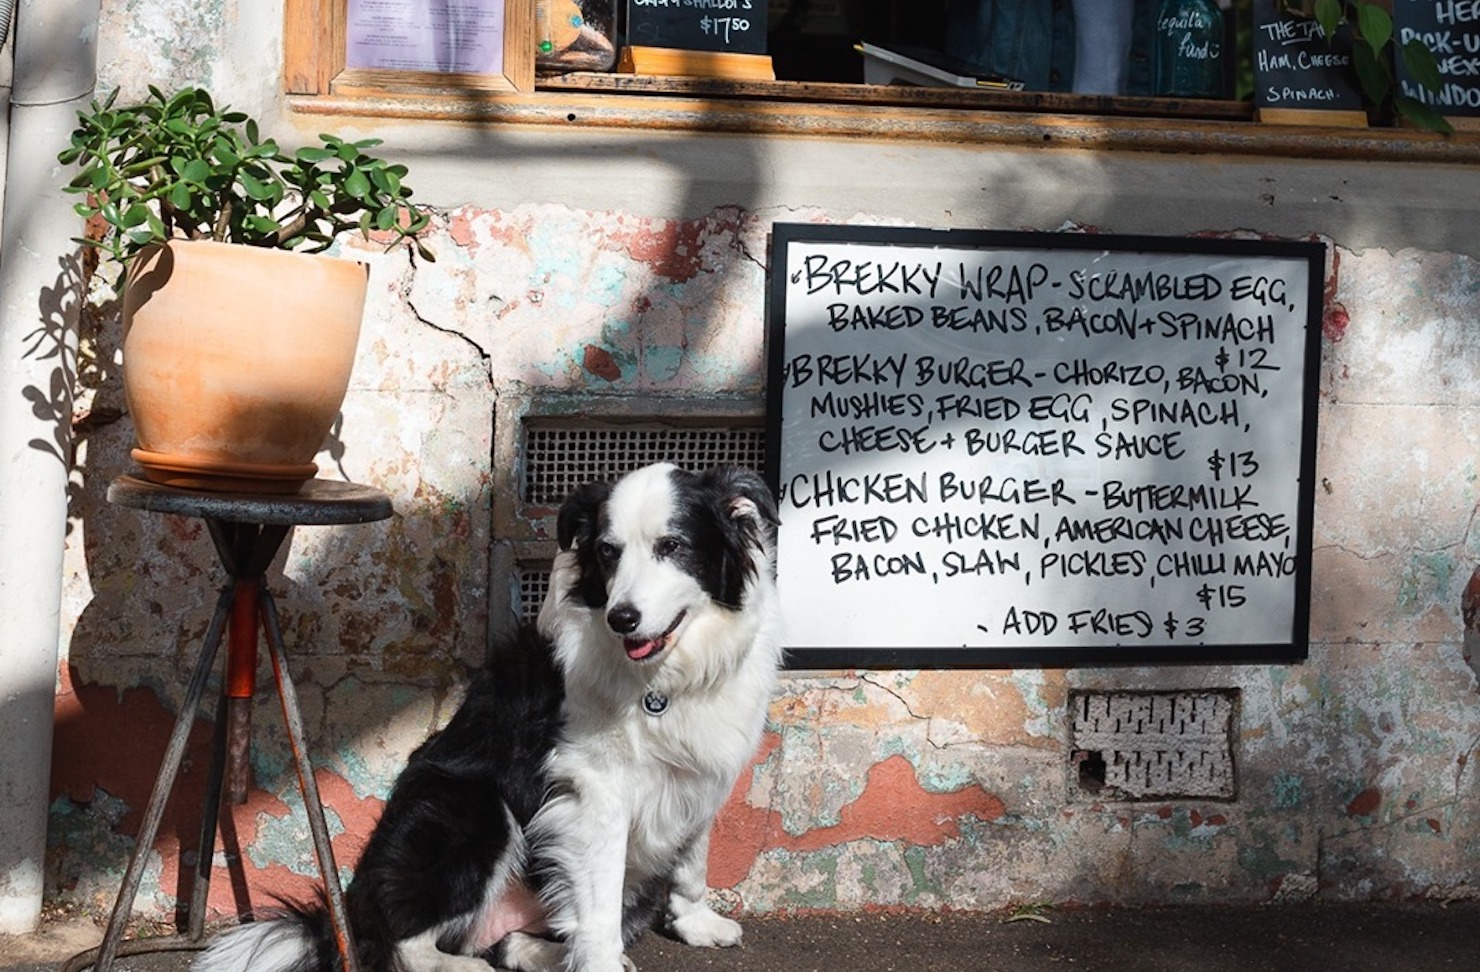 CRISPY SHALLOTS
$17⁵⁰
tequila
fund
THE
HAM, CHEESE
SPINACH.
PICK-U
NEX
WINDO
BREKKY WRAP - SCRAMBLED EGG,
BAKED BEANS, BACON + SPINACH
$12
BREKKY BURGER - CHORIZO, BACON,
MUSHIES, FRIED EGG, SPINACH,
CHEESE + BURGER SAUCE
$13
CHICKEN BURGER - BUTTERMILK
FRIED CHICKEN, AMERICAN CHEESE,
BACON, SLAW, PICKLES, CHILLI MAYO
$15
- ADD FRIES $3